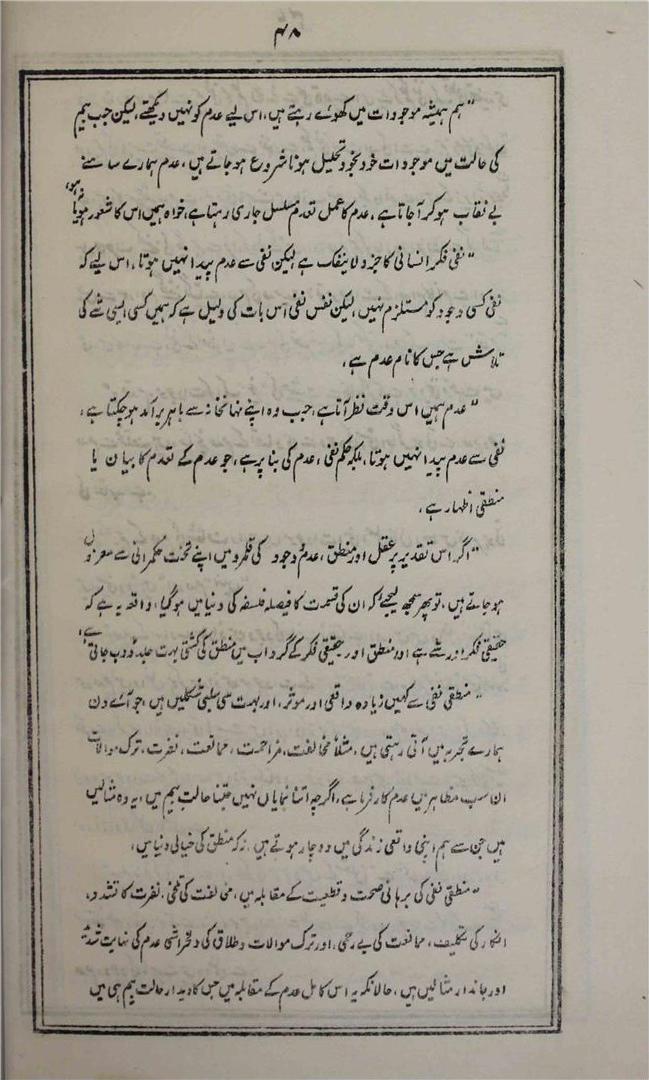 ۴۸
"ہم ہمیشہ موجودات میں کھوئے رہتے ہیں، اس لیے عدم کو نہیں دیکھتے، لیکن جب ہیم
کی حالت میں موجودات خود بخود تحلیل ہونا شروع ہو جاتے ہیں، عدم ہمارے سامنے
بے نقاب ہو کر آ جاتا ہے، عدم کا عمل تعدم مسلسل جاری رہتا ہے، خواہ ہمیں اس کا شعور ہو یا نہ ہو،
"نفی فکر انسانی کا جزو لا ینفک ہے لیکن نفی سے عدم پیدا نہیں ہوتا، اس لیے کہ
نفی کسی وجود کو مستلزم نہیں، لیکن نفس نفی اس بات کی دلیل ہے کہ ہمیں کسی ایسی شے کی
تلاش ہے جس کا نام عدم ہے،
"عدم ہمیں اس وقت نظر آتا ہے، جب وہ اپنے نہانخانہ سے باہر برآمد ہو چکتا ہے،
نفی سے عدم پیدا نہیں ہوتا، بلکہ حکم نفی، عدم کی بنا پر ہے، جو عدم کے تعدم کا بیان یا
منطقی اظہار ہے،
"اگر اس تقدیر پر عقل اور منطق، عدم و وجود کی قلمرو میں اپنے تخت حکمرانی سے معزول
ہو جاتے ہیں، تو پھر سمجھ لیجیے کہ ان کی قسمت کا فیصلہ فلسفہ کی دنیا میں ہو گیا، واقعہ یہ ہے کہ
حقیقی فکر اور شے ہے اور منطق اور حقیقی فکر کے گرداب میں منطق کی کشتی بہت جلد ڈوب جاتی ہے،
"منطقی نفی سے کہیں زیادہ واقعی اور موثر، اور بہت سی سلبی شکلیں ہیں، جو آئے دن
ہمارے تجربہ میں آتی رہتی ہیں، مثلاً مخالفت، مزاحمت، ممانعت، نفرت، ترک موالات
ان سب مظاہر میں عدم کارفرما ہے، اگرچہ اتنا نمایاں نہیں جتنا حالت ہیم میں، یہ وہ مثالیں
ہیں جن سے ہم اپنی واقعی زندگی میں دوچار ہوتے ہیں، نہ کہ منطق کی خیالی دنیا میں،
"منطقی نفی کی برہانی صحت و قطعیت کے مقابلہ میں، مخالفت کی تلخی، نفرت کا تشدد،
انکار کی تکلیف، ممانعت کی بے رحمی، اور ترک موالات و طلاق کی دلخراشی عدم کی نہایت شدید
اور جاندار مثالیں ہیں، حالانکہ یہ اس کامل عدم کے مقابلہ میں جس کا دیدار حالت ہیم ہی میں